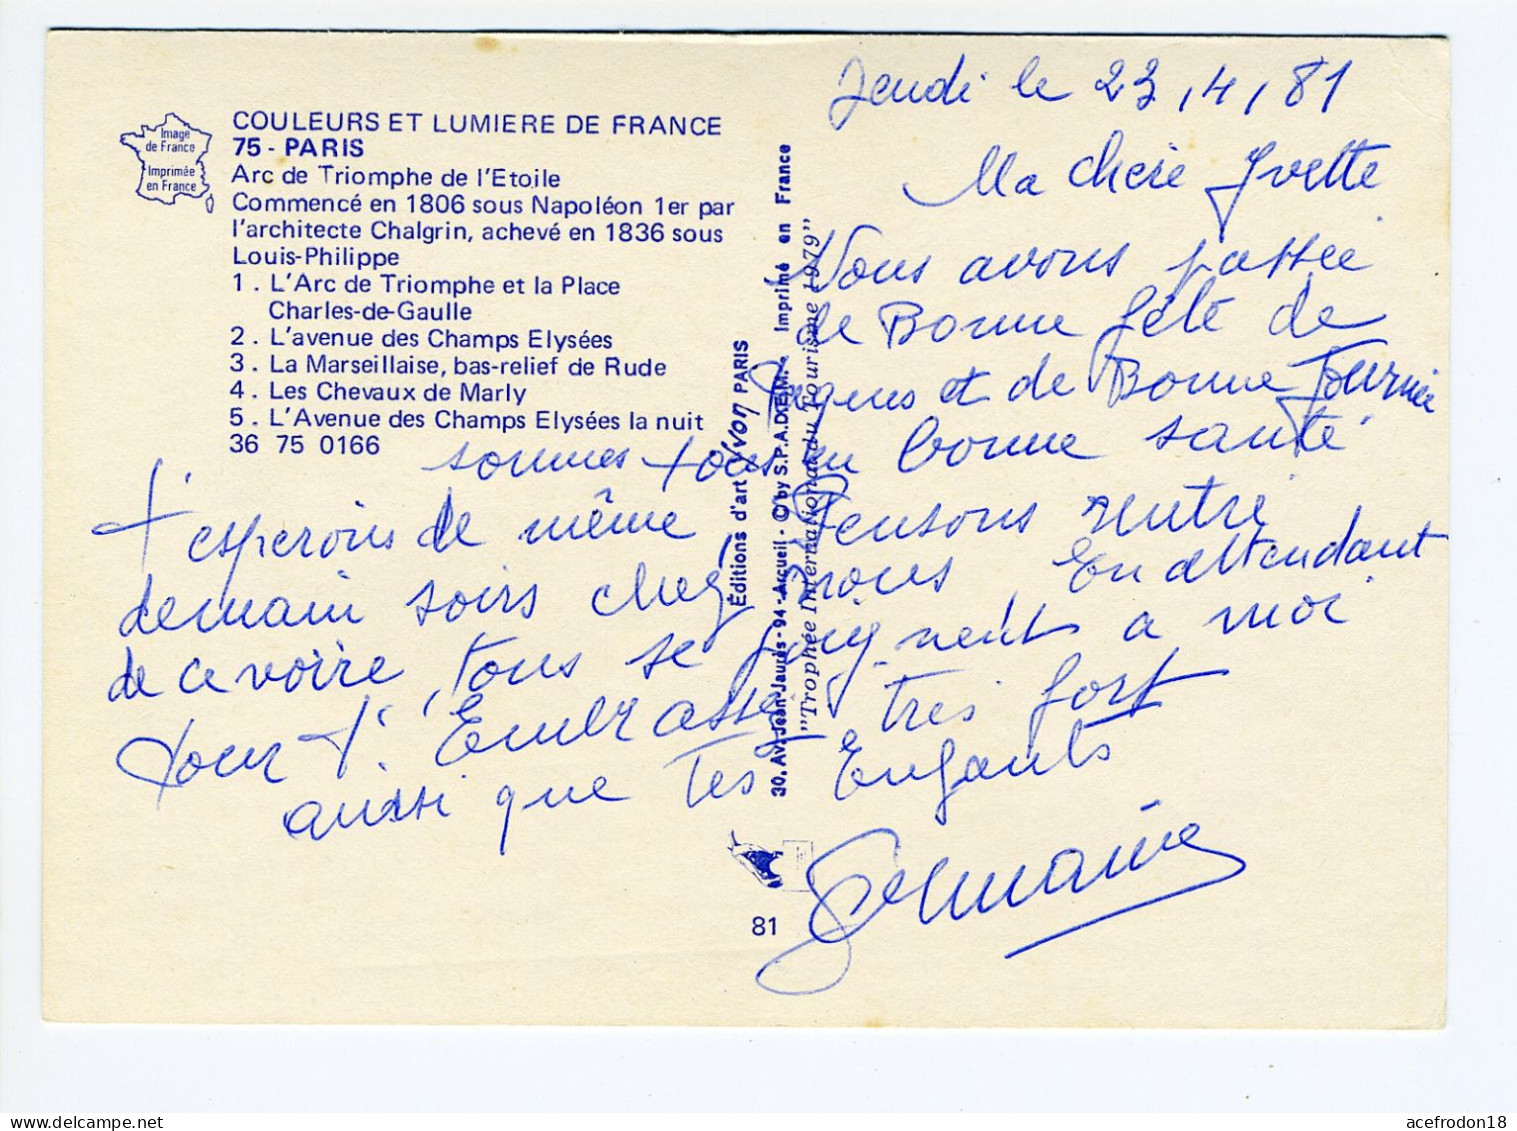 COULEURS ET LUMIERE DE FRANCE
75 - PARIS
Arc de Triomphe de l'Etoile
Commencé en 1806 sous Napoléon 1er par
l'architecte Chalgrin, achevé en 1836 sous
Louis-Philippe
1. L'Arc de Triomphe et la Place
Charles-de-Gaulle
2. L'avenue des Champs Elysées
3. La Marseillaise, bas-relief de Rude
4. Les Chevaux de Marly
5. L'Avenue des Champs Elysées la nuit
36 75 0166
Image
de France
Imprimée
en France
Éditions d'art Yvon PARIS
30, Av. Jean-Jaurès - 94 - Arcueil - © by S.P.A.D.E.M. - Imprimé en France
"Trophée International du Tourisme 1979"
81
Jeudi le 23,4,81
Ma chère Yvette
Nous avons passée
de Bonne fête de
Paques et de Bonne Journée
sommes tous en bonne santé
t'esperons de même, Pensons rentré
demain soirs chez nous, En attendant
de ce voire, tous se joignent a moi
pour t'Embrasser très fort
aussi que Tes Enfants
Germaine
acefrodon18